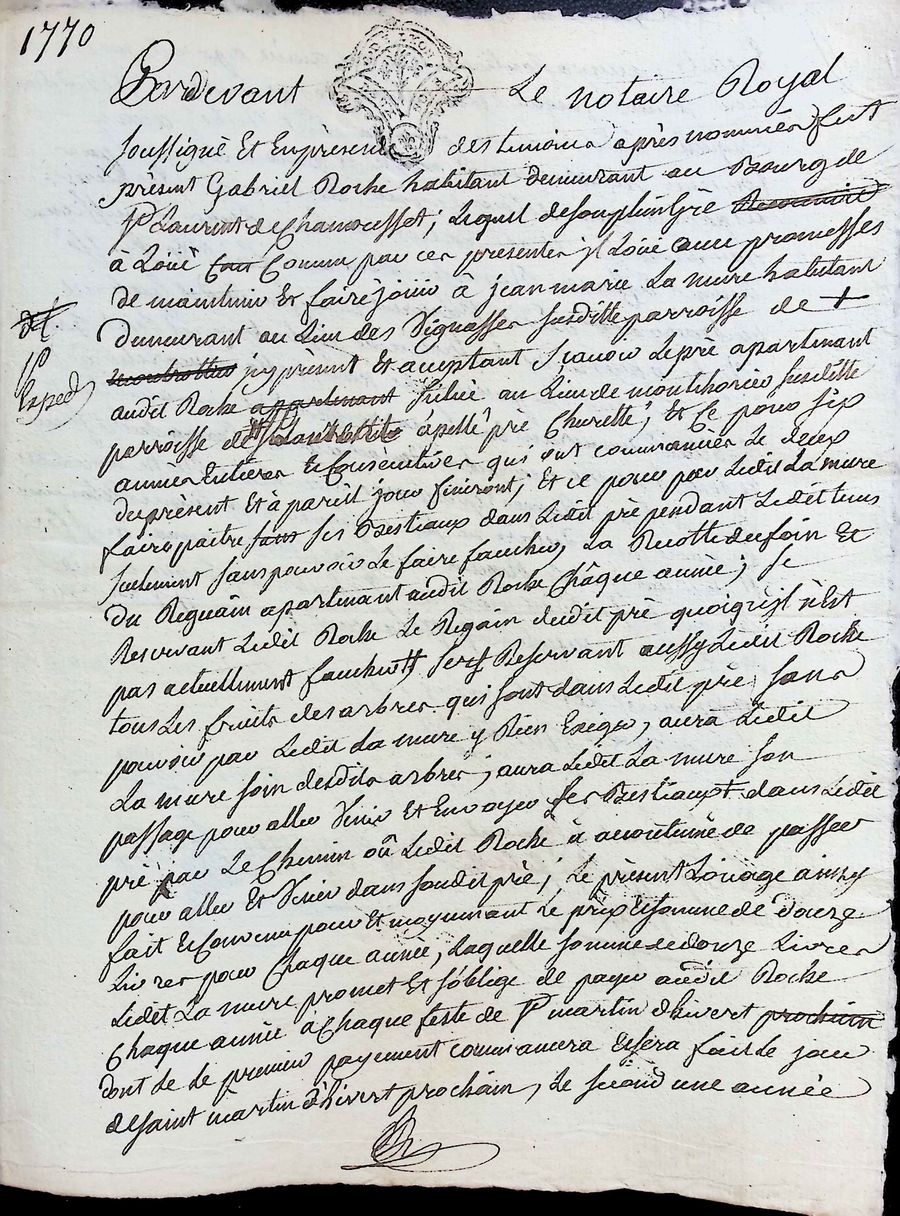 1770
Pardevant Le notaire Royal
soussigné Et En présence des temoins après nommées fust
présent Gabriel Roche habitant demeurant au Bourg de
St Laurent de Chamousset, Lequel de son plein Gré
à Loüé Comme par ces présentes il Loüe avec promesses
de maintenir Et faire jouir à jean marie La mure habitant
demeurant au Lieu des Vignasses susditte parroisse de +
icy présent Et aceptant Sçavoir Le pré apartenant
audit Roche apartenant situé au Lieu de monthorier susditte
parroisse de apellé pré Churelle, Et Ce pour six
années Entières Et Consécutives qui ont commancées Le deux
du présent Et à pareil jour finiront; Et ce pour par Ledit La mure
faire paitre sans ses Bestiaux dans Ledit pré pendant Ledit tems
seulement sans pouvoir Le faire faucher, La Recolte du foin Et
du Reguain apartenant audit Roche Châque année; se
Reservant Ledit Roche Le Regain dudit pré quoiqu'il n'Est
pas actuellement fauché, se Reservant aussy Ledit Roche
tous Les fruits des arbres qui sont dans Ledit pré sans
pouvoir par Ledit La mure y Rien Exiger, aura Ledit
La mure soin desdits arbres; aura Ledit La mure son
passage pour aller Venir Et Envoyer ses Bestiaux dans Ledit
pré par Le Chemin où Ledit Roche à accoutumé de passer
pour aller Et Venir dans son dit pré; Le présent Loüage ainsy
fait Et Convenu pour Et moyennant Le prix Et somme de douze
Livres pour Chaque année, Laquelle somme de douze Livres
Ledit La mure promet Et s'oblige de payer audit Roche
Chaque année à Chaque feste de St martin d'hivert prochain
dont Le de premier payement commancera Et sera fait Le jour
de saint martin d'hivert prochain, Le second une année
St
Exped